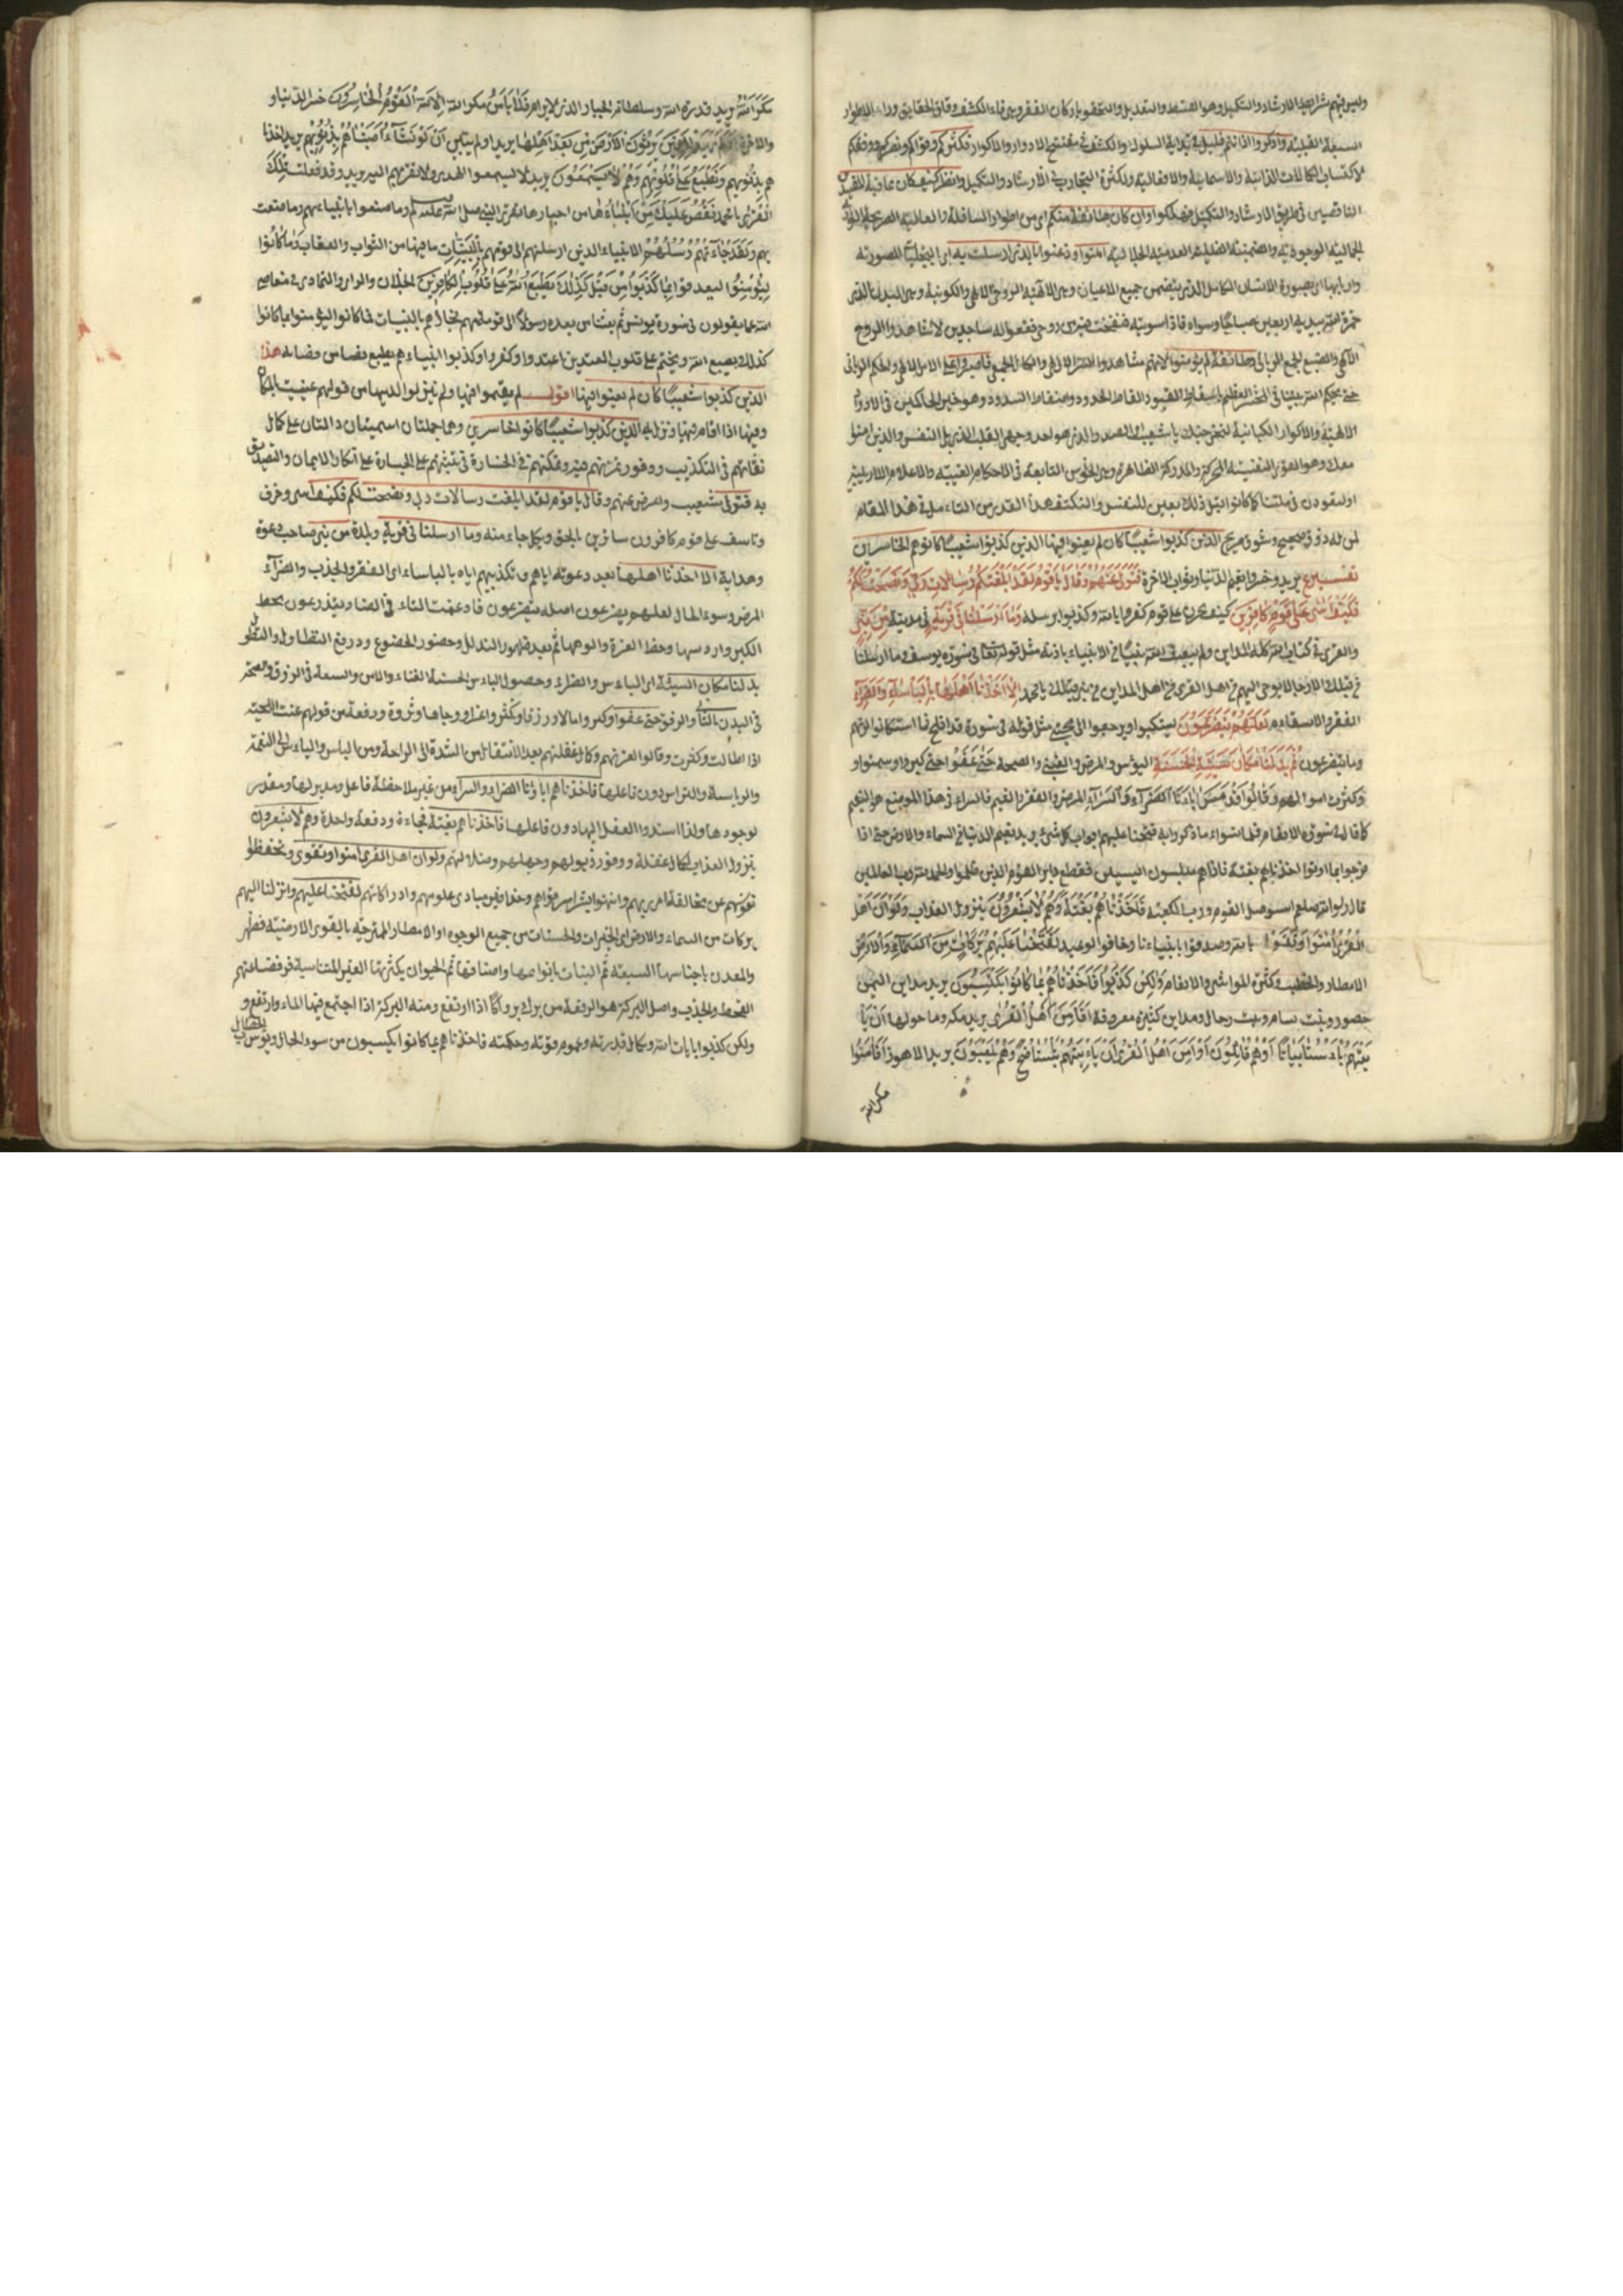 وليس فيهم شرايط الارشاد والتكميل وهو القسط والتعديل والتحقق باركان الفقر وهي فناء الكشف وقاف الحقايق وراء الاطوار
السبعة القلبية واذكروا اذ انتم قليل في بداية السلوك والكشف في مفتتح الادوار والاكوار فكثركم وقواكم ونصركم ووفقكم
لاكتساب الكمالات الذاتية والاسمائية والافعالية ولكثرة التجارب في الارشاد والتكميل وانظر كيف كان عاقبة المفسدين
الناقصين في طريق الارشاد والتكميل فهلكوا وان كان طائفة منكم اى من اطوار السافلة والعالية
الجمالية الوجودية والضمنية الظلية العدمية الجلالية امنوا وذعنوا بالذى ارسلت به اى التجليات الصورية
واربابها اى بصورة الانسان الكامل الذى يتضمن جميع الاعيان وهى الالهية الروحى الالهى والكونية وهى البدن الذى
خمره الله بيديه اربعين صباحا وسواه فاذا سويته فنفخت فيه من روحى فقعوا له ساجدين لانشاهدوا الروح
الالهى والصبغ الجمع الربانى وطائفة لم يؤمنوا لانهم مشاهدوا السر الالهى والكمال الجمعى فاصبروا على الامر الالهى والحكم الربانى
حتى يحكم الله بيننا في المحشر العظيم باسقاط القيود القاط الحدود واصفاط السدود وهو خير الحاكمين في الادوار
الالهية والاكوار الكيانية لنخرجنك ياشعيب الصدر والذى هو احد وجهى القلب الذى يلى النفس والذين امنوا
معك وهو القوى النفسية المحركة والمدركة الظاهرة وهى الحواس التابعة في الاحكام الغيبية والاعلام
او لتعودن في ملتنا كما كانوا قبل ذلك تابعين للنفس والنكتف هذا القدر من التأمل في هذا المقام
لمن له ذوق صحيح وشوق صريح الذين كذبوا شعيبا كان لم يغنوا فيها الذين كذبوا شعيبا كانوا هم الخاسرين
تفسير يريد وخسروا نعيم الدنيا وثواب الاخرة فتولى عنهم وقال ياقوم لقد ابلغتكم رسالات ربى ونصحت لكم
فكيف اسى على قوم كافرين كيف يحزن على قوم كفروا بالله وكذبوا برسله وما ارسلنا في قرية في مدينة من نبى
والقرى في كتاب الله كله المداين ولم يبعث الله نبيا في الانبياء باذنه مثل قوله تعالى في سورة يوسف وما ارسلنا
من قبلك الا رجالا يوحى اليهم من اهل القرى من اهل المداين من نبى قبلك يامحمد الا اخذنا اهلها بالبأساء والضراء
الفقر والاسقام لعلهم يضرعون يستكبوا ويرجعوا الى محبتى مثل قوله في سورة قد افلح فما استكانوا لربهم
وما يتضرعون ثم بدلنا مكان السيئة الحسنة البؤس والمرض والغنى والصحة حتى عفوا حتى كبروا وسمنوا و
وكثرت اموالهم وقالوا قد مس اباءنا الضراء والسراء المرض والفقر والنعيم فالسراء في هذا الموضع هو النعيم
كما قال في سورة الانعام فلما نسوا ما ذكروا به فتحنا عليهم ابواب كل شئ يريد نعيم الدنيا من السماء والارض حتى اذا
فرحوا بما اوتوا اخذناهم بغتة فاذاهم مبلسون ايسين فقطع دابر القوم الذين ظلموا والحمد لله رب العالمين
قال رسول الله صلعم استوصل القوم ورب الكعبة فاخذناهم بغتة وهم لايشعرون بنزول العذاب ولو ان اهل
القرى امنوا واتقوا بالله وصدقوا بانبياءنا وخافوا الوعيد لفتحنا عليهم بركات من السماء والارض
الامطار والخصب وكثرة المواشى والانعام ولكن كذبوا فاخذناهم بما كانوا يكسبون يريد مداين اليمن
حضور وبنت سام وبيت رحال ومداين كثيرة معروفة افأمن اهل القرى يريد مكه وما حولها ان يأ
تيهم بأسنا بياتا وهم نائمون او امن اهل القرى ان يأتيهم بأسنا ضحى وهم يلعبون يريد الاهون افامنوا
مكر الله
مكر الله يريد قدرة الله وسلطانه الجبار الذى لايرام فلا يأمن مكر الله الا القوم الخاسرون خسر الدنيا و
والاخرة اولم يهد للذين يرثون الارض من بعد اهلها يريد اولم يتبين ان لو نشاء اصبناهم بذنوبهم يريد اخذنا
هم بذنوبهم ونطبع على قلوبهم وهم لايسمعون يريد لايسمعوا الهدى ولا تقربهم اليه يريد وقد فعلت تلك
القرى يامحمد نقص عليك من انبائها من اخبارها تعزى النبى صلى الله عليه وسلم وما صنعوا بانبياءهم وما صنعت
بهم ولقد جاءتهم رسلهم الانبياء الذين ارسلتهم الى قومهم بالبينات مافيها من الثواب والعقاب وما كانوا
ليؤمنوا ليصدقوا بما كذبوا من قبل كذلك يطبع الله على قلوب الكافرين الخذلان والران والتمادى في معاصى
الله عما يقولون في سورة يونس ثم بعثنا من بعده رسولا الى قومهم فجاؤهم بالبينات فما كانوا ليؤمنوا بما كانوا
كذلك يطبع الله ويختم على قلوب المعتدين اعتدوا وكفروا وكذبوا انبياءهم يطبع قضا من قضائه هذا
الذين كذبوا شعيبا كان لم يغنوا فيها اقول لم يقيموا فيها ولم ينزلوا لديها من قولهم غنيت بالمكان
وفيها اذا اقام فيها ونزل به الذين كذبوا شعيبا كانوا الخاسرين وهما جملتان اسميتان دالتان على كمال
نقاتهم في التكذيب ووفور ثباتهم فيه وتمكنهم في الخسارة وتثبتهم على الجسارة على انكار الايمان والتصديق
به فتولى شعيب واعرض عنهم وقال ياقوم لقد ابلغت رسالات ربى ونصحت لكم فكيف اسى وخرف
وتاسف على قوم كافرون ساترين بالحق وبكل جاء منه وما ارسلنا في قرية وبلدة من نبى صاحب دعوة
وهداية الا اخذنا اهلها بعد دعوته اياهم وتكذيبهم اياه بالبأساء اى الفقر والجذب والضراء
المرض وسوء المال لعلهم يضرعون اصله يتضرعون فادغمت التاء في الضاد يتذرعون بحط
الكبر وارديها وحفظ العزة والوجها ثم بعد ظهور التذلل وحصور الخضوع ودروغ التطاول والتطول
بدلنا مكان السيئة اى البأس والضراء وحصول البأس الحسنة الغناء والامن والسعة في الرزق والصحة
في البدن بالتأنى والرفق حتى عفوا وكبروا مالا ورزقا وكثروا اعدادا وجاها وثروة ورفعة من قولهم عفت اللحية
اذا طالت وكثرت وقالوا لعزتهم وكمال غفلتهم بعد الانتقال من الشدة الى الراحة ومن البأس والبأساء الى النعمة
والرياسة والتراس دون فاعلها فاخذناهم اباءنا الضراء والسراء من غير ملاحظة فاعل ومدبر لها ومقدر
لوجودها ولذا اسندوا الفعل اليها دون فاعلها فاخذناهم بغتة فجاءة ودفعة واحدة وهم لايشعرون
بنزول العذاب لكمال غفلة ووفور ذبولهم وجهلهم وضلالهم ولو ان اهل القرى امنوا وتقوى وتحفظوا
نفوسهم عن مخالفة امر ربهم وانتهوا بشراشر قواهم وحذافير مبادى علومهم وادراكاتهم لفتحنا عليهم وانزلنا اليهم
بركات من السماء والارض اى الخيرات والحسنات من جميع الوجوه او الامطار الممتزجة بالقوى الارضية فظهر
والمعدن باجناسها السبعة ثم النبات بانواعها واصنافها ثم الحيوان بكثرتها الغير المتناسبة فرفضناعنهم
القحط والجذب واصل البركة هو الرفعة من برك بروكا اذا ارتفع ومنه البركة اذا اجتمع فيها الماء وارتفع و
ولكن كذبوا بايات الله وبكمال قدرته وعموم قوته وحكمته فاخذناهم بما كانوا يكسبون من سوء الحال وبؤس